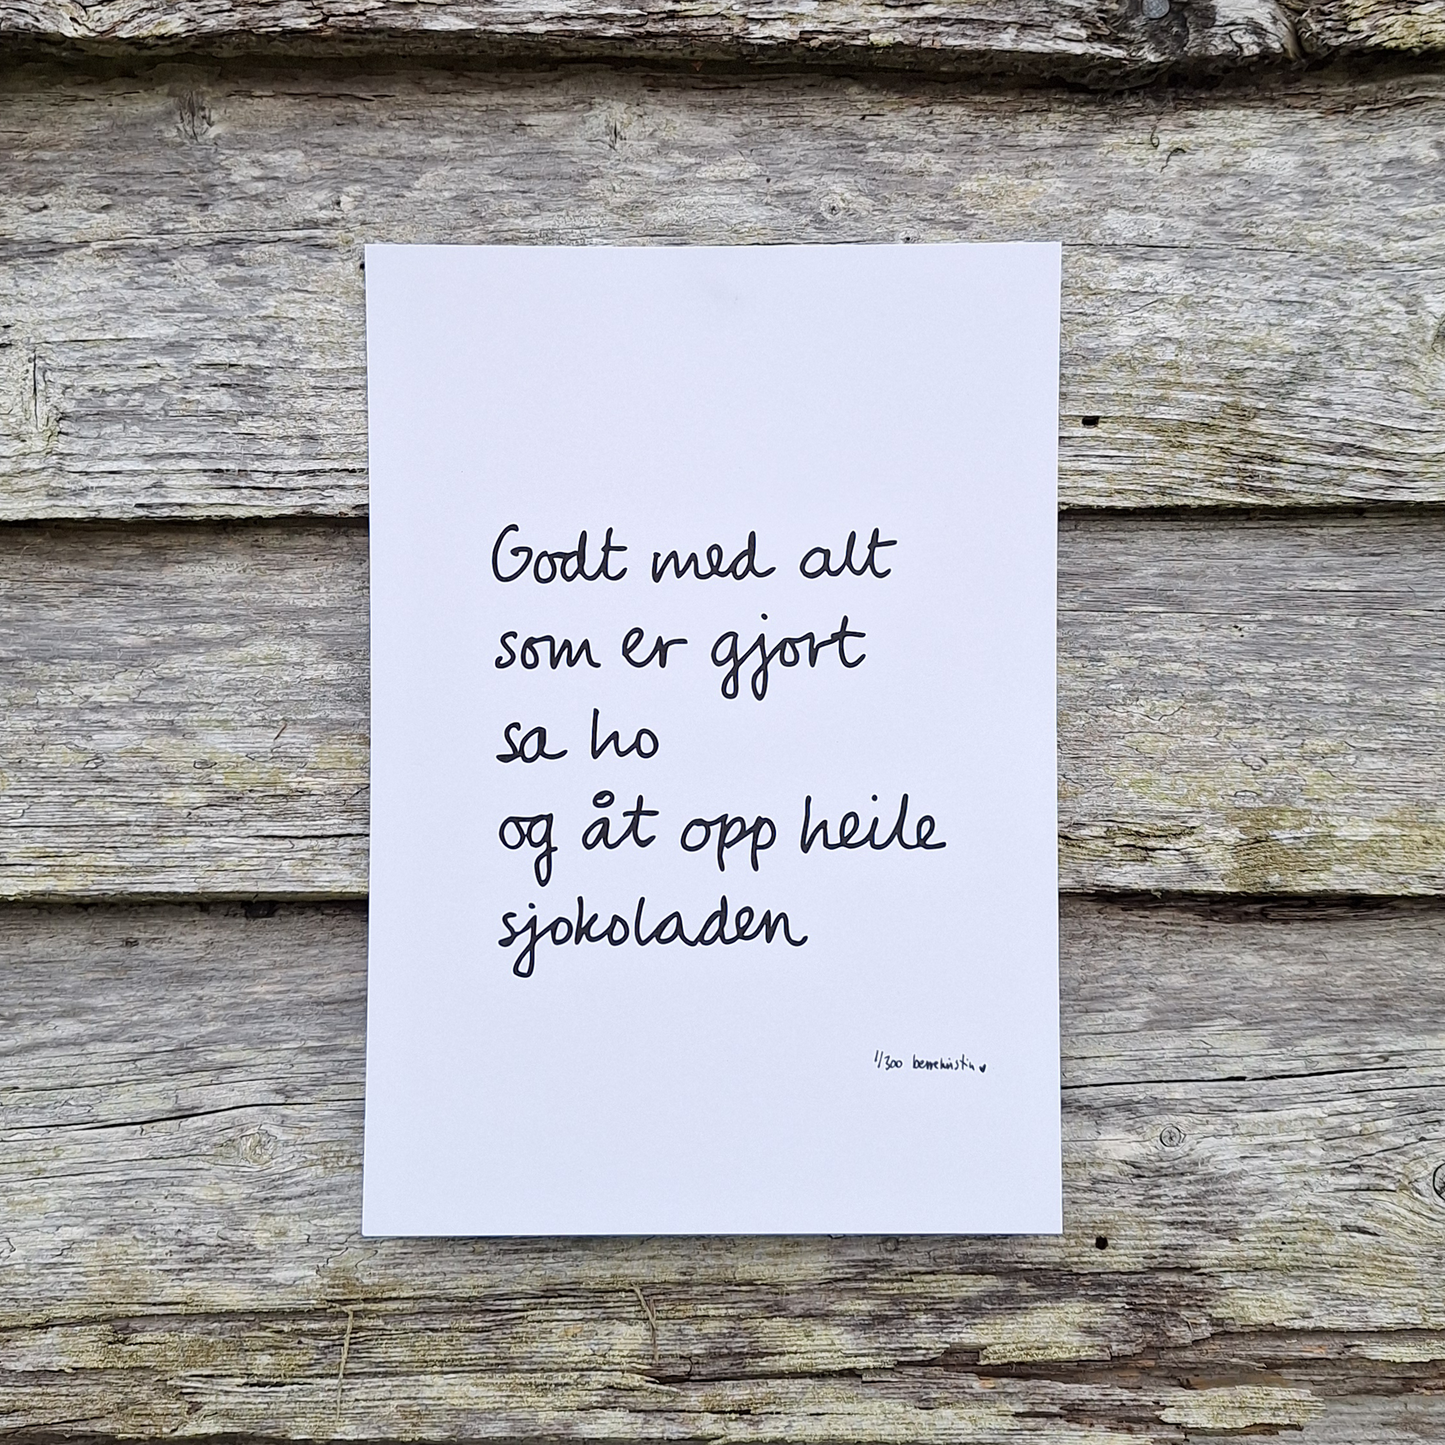 Godt med alt
som er gjort
sa ho
og åt opp heile
sjokoladen
1/300